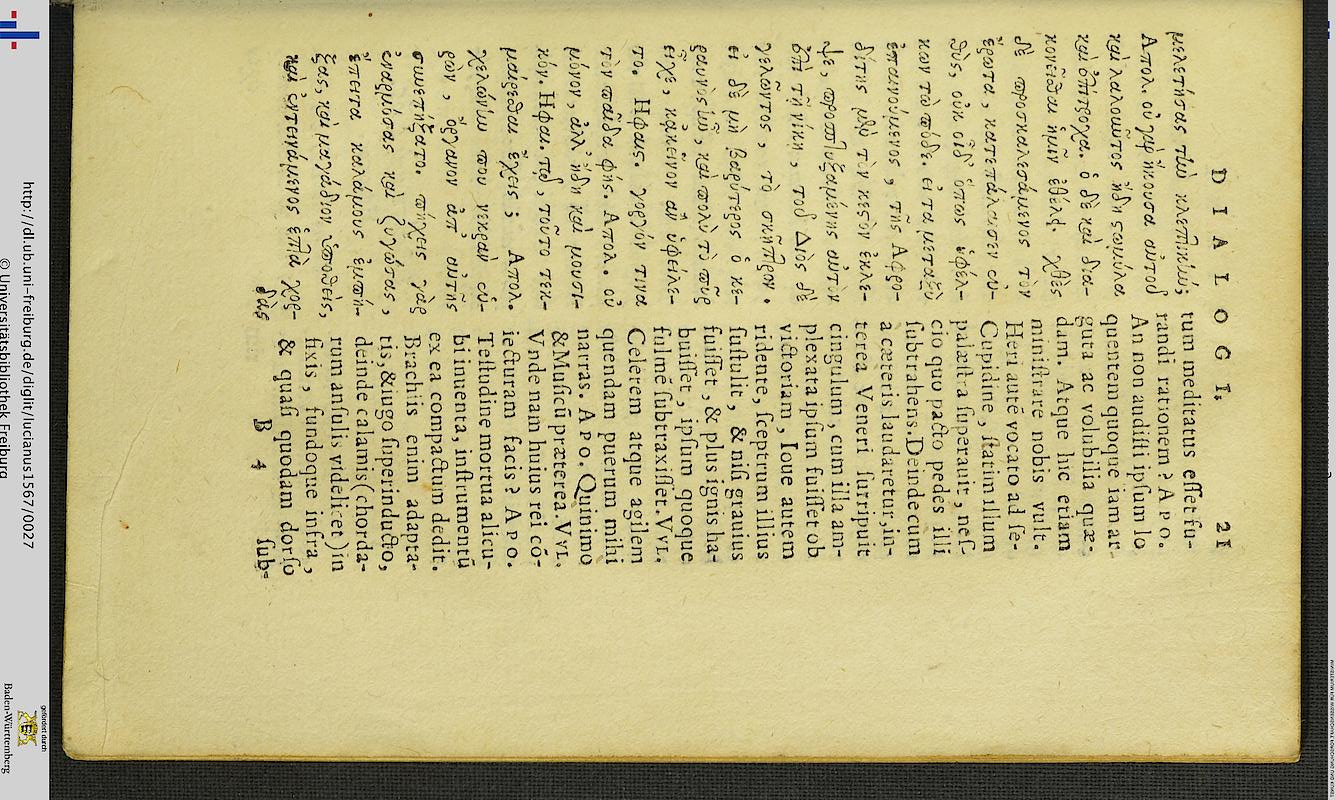 DIALOGI. 21
μελετήσας τὴν κλεπτικήν;
Απολ. οὐ γὰρ ἤκουσα αὐτοῦ
καὶ λαλοῦντος ἤδη στωμύλα
καὶ ἐπίτροχα. ὁ δὲ καὶ δια-
κονεῖσθαι ἡμῖν ἐθέλει. χθὲς
δὲ προσκαλεσάμενος τὸν
ἔρωτα, κατεπάλαισεν εὐ-
θὺς, οὐκ οἶδ' ὅπως ὑφέλ-
κων τὼ πόδε. εἶτα μεταξὺ
ἐπαινούμενος, τῆς Αφρο-
δίτης μὲν τὸν κεστὸν ἔκλε-
ψε, προσπτυξαμένης αὐτὸν
ἐπὶ τῇ νίκῃ, τοῦ Διὸς δὲ
γελῶντος, τὸ σκῆπτρον.
εἰ δὲ μὴ βαρύτερος ὁ κε-
ραυνὸς ἦν, καὶ πολὺ τὸ πῦρ
εἶχε, κἀκεῖνον ἂν ὑφείλε-
το. Ηφαις. γοργόν τινα
τὸν παῖδα φής. Απολ. οὐ
μόνον, ἀλλ' ἤδη καὶ μουσι-
κόν. Ηφαι. τῷ, τοῦτο τεκ-
μαίρεσθαι ἔχεις; Απολ.
χελώνην που νεκρὰν εὑ-
ρὼν, ὄργανον ἀπ' αὐτῆς
συνεπήξατο. πήχεις γὰρ
ἐναρμόσας καὶ ζυγώσας,
ἔπειτα καλάμους ἐμπή-
ξας, καὶ μαγάδιον ὑποθεὶς,
καὶ ἐντεινάμενος ἑπτὰ χορ-
δὰς
tum meditatus esset fu-
randi rationem? APO.
An non audisti ipsum lo
quentem quoque iam ar-
guta ac volubilia quæ-
dam. Atque hic etiam
ministrare nobis vult.
Heri autē vocato ad se-
Cupidine, statim illum
palæstra superauit, nes-
cio quo pacto pedes illi
subtrahens. Deinde cum
a cæteris laudaretur, in-
terea Veneri surripuit
cingulum, cum illa am-
plexata ipsum fuisset ob
victoriam, Ioue autem
ridente, sceptrum illius
sustulit, & nisi grauius
fuisset, & plus ignis ha-
buisset, ipsum quoque
fulmē subtraxisset. VVL.
Celerem atque agilem
quendam puerum mihi
narras. APO. Quinimo
& Musicū præterea. VVL.
Vnde nam huius rei cō-
iecturam facis? APO.
Testudine mortua alicu-
bi inuenta, instrumentū
ex ea compactum dedit.
Brachiis enim adapta-
tis, & iugo superinducto,
deinde calamis (chorda-
rum ansulis videlicet) in
fixis, fundoque infra,
& quasi quodam dorso
B 4 sub-
http://dl.ub.uni-freiburg.de/diglit/lucianus1567/0027
© Universitätsbibliothek Freiburg
gefördert durch
Baden-Württemberg